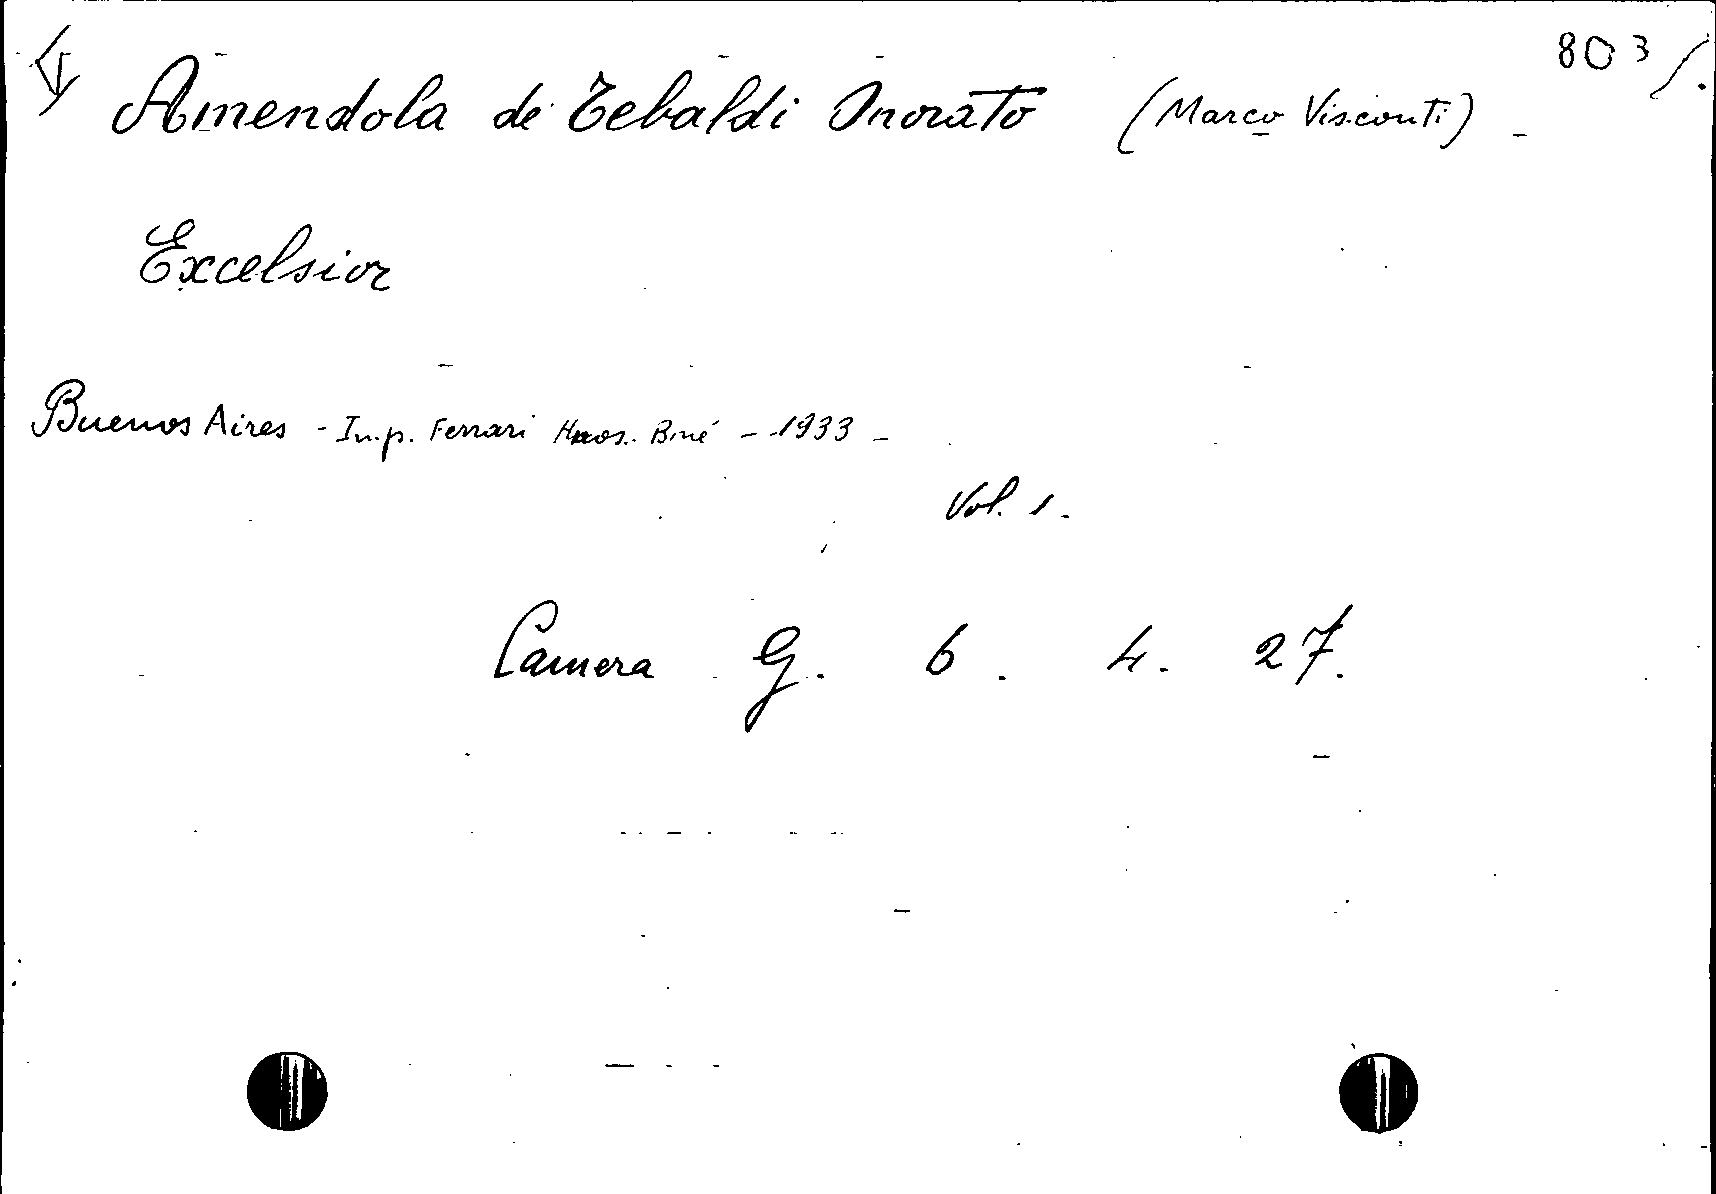 803
Amendola de Tebaldi Onorato (Marco Visconti) -
Excelsior
Buenos Aires - Imp. Ferrari Hnos. - 1933 -
Vol. 1.
Camera G. 6. 4. 27.